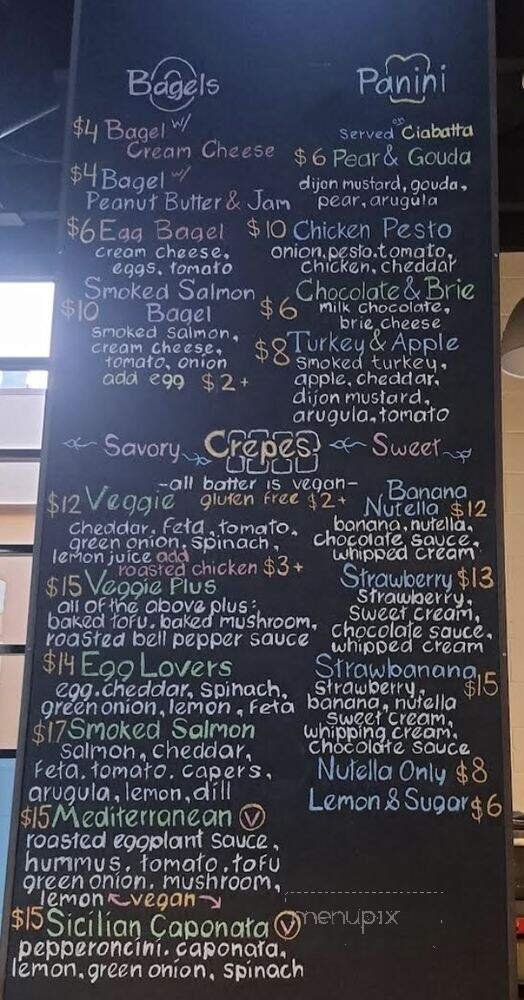 Bagels
$4 Bagel w/
Cream Cheese
$4 Bagel w/
Peanut Butter & Jam
$6 Egg Bagel
cream cheese,
eggs, tomato
Smoked Salmon
$10 Bagel
smoked salmon,
cream cheese,
tomato, onion
add egg $2+
Panini
served on Ciabatta
$6 Pear & Gouda
dijon mustard, gouda,
pear, arugula
$10 Chicken Pesto
onion, pesto, tomato,
chicken, cheddar
Chocolate & Brie
$6 milk chocolate,
brie cheese
$8 Turkey & Apple
smoked turkey,
apple, cheddar,
dijon mustard,
arugula, tomato
Savory Crepes Sweet
-all batter is vegan-
gluten free $2+
$12 Veggie
cheddar, feta, tomato,
green onion, spinach,
lemon juice add
roasted chicken $3+
$15 Veggie Plus
all of the above plus:
baked tofu, baked mushroom,
roasted bell pepper sauce
$14 Egg Lovers
egg, cheddar, spinach,
green onion, lemon, feta
$17 Smoked Salmon
salmon, cheddar,
feta, tomato, capers,
arugula, lemon, dill
$15 Mediterranean V
roasted eggplant sauce,
hummus, tomato, tofu
green onion, mushroom,
lemon vegan
$15 Sicilian Caponata V
pepperoncini, caponata,
lemon, green onion, spinach
Banana
Nutella $12
banana, nutella,
chocolate sauce,
whipped cream
Strawberry $13
strawberry,
sweet cream,
chocolate sauce,
whipped cream
Strawbanana
strawberry, $15
banana, nutella
sweet cream,
whipping cream,
chocolate sauce
Nutella Only $8
Lemon & Sugar $6
menupix